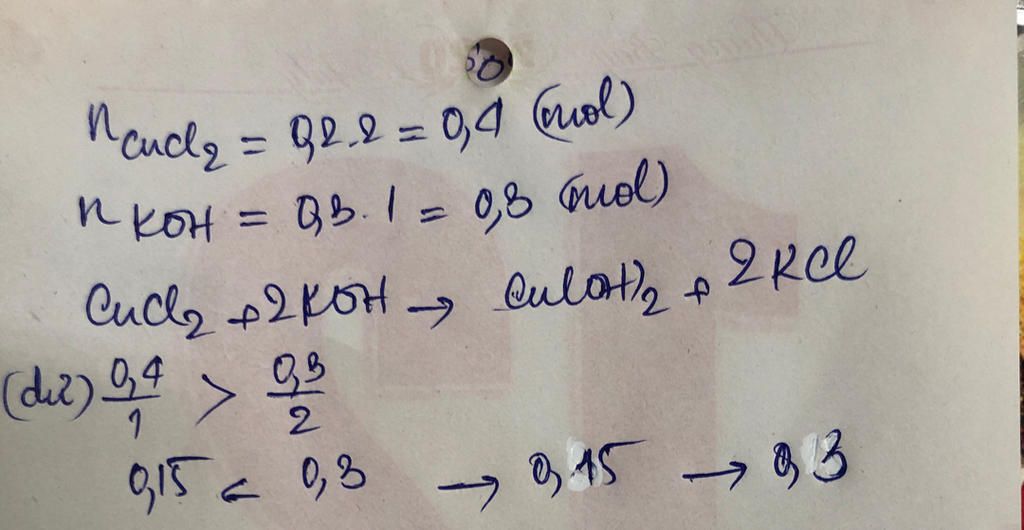 n CuCl2 = 0,2.2 = 0,4 (mol)
n KOH = 0,3.1 = 0,3 (mol)
CuCl2 + 2KOH → Cu(OH)2 + 2KCl
(dư) 0,4/1 > 0,3/2
0,15 ← 0,3 → 0,15 → 0,3